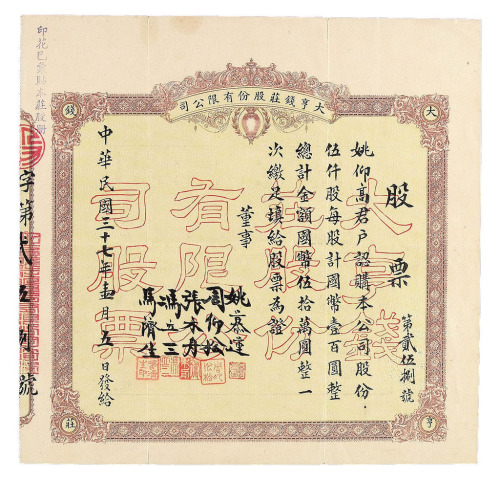 大亨錢莊股份有限公司
大
錢
亨
莊
股票
第貳伍捌號
姚仰高君户認購本公司股份
伍仟股每股計國幣壹百圓整
總計金額國幣伍拾萬圓整一
次繳足填給股票為證
董事
姚慕蓮
周仰松
張木舟
馮五三
馬濟生
中華民國三十七年 月五日發給
大亨錢
莊股份
有限公
司股票
印花已 貼本莊股冊
字第貳伍捌號